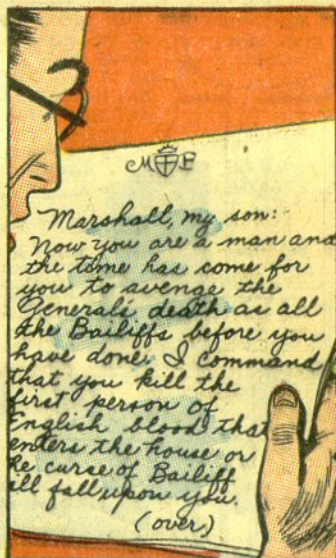 M F
Marshall, my son:
Now you are a man and
the time has come for
you to avenge the
General's death as all
the Bailiffs before you
have done. I command
that you kill the
first person of
English blood that
enters the house or
he curse of Bailiff
ill fall upon you.
(over)